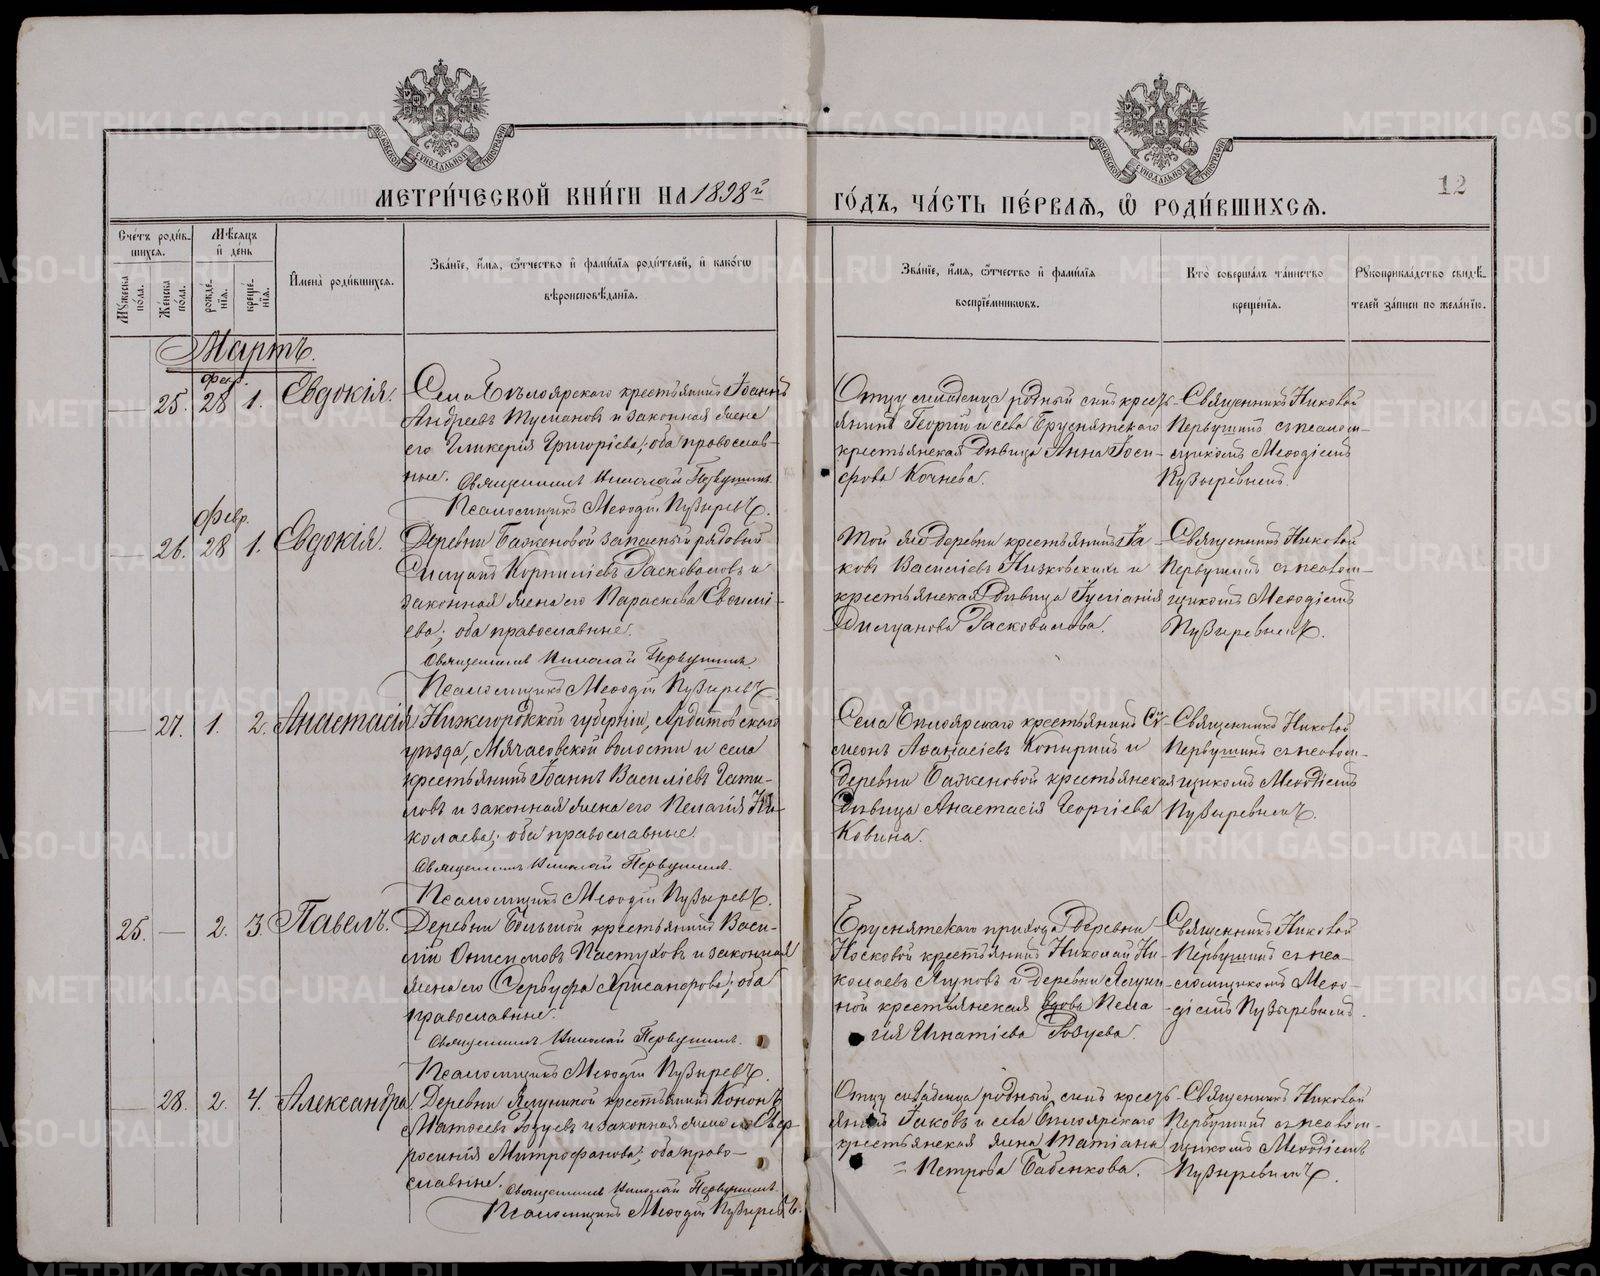 МЕТРИ́ЧЕСКОЙ КНИ́ГИ НА 1898й
ГО́ДЪ, ЧА́СТЬ ПЕ́РВАЯ, Ѡ҆ РОДИ́ВШИХСЯ.
12
Сче́тъ роди́в-
шихся.
Мѣ́сяцъ
и҆ де́нь
Мꙋ́жеска по́ла.
Же́нска по́ла.
рожде́-
нїя.
креще́-
нїя.
И҆мена̀ роди́вшихся.
Зва́нїе, и҆́мя, ѻ҆́тчество и҆ фами́лїя роди́телей, и҆ како́гѡ
вѣроисповѣ́данїя.
Зва́нїе, и҆́мя, ѻ҆́тчество и҆ фами́лїя
воспрїе́мниковъ.
Кто̀ соверша́лъ та́инство
креще́нїя.
Рꙋкоприкла́дство свидѣ́-
телей за́писи по жела́нїю.
Мартъ.
Фев.
25. 28 1. Евдокія.
Села Бѣлоярскаго крестьянинъ Іоаннъ
Андреевъ Тумановъ и законная жена
его Гликерія Григоріева; оба православ-
ные. Священникъ Николай Первушинъ
Псаломщикъ Меѳодій Пузыревъ.
Отцу младенца родный сынъ кресть-
янинъ Георгій и села Бруснятскаго
крестьянская дѣвица Анна Іоси-
фова Кочнева.
Священникъ Николай
Первушинъ съ псалом-
щикомъ Меѳодіемъ
Пузыревымъ.
Февр.
26. 28 1. Евдокія.
Деревни Баженовой запасный рядовый
Корниліевъ Расковаловъ и
законная жена его Параскева
ева; оба православные.
Священникъ Николай Первушинъ.
Псаломщикъ Меѳодій Пузыревъ.
Той же деревни крестьянинъ Іа-
ковъ Василіевъ Низковскихъ и
крестьянская дѣвица Іуліанія
Расковалова.
Священникъ Николай
Первушинъ съ псалом-
щикомъ Меѳодіемъ
Пузыревымъ.
27. 1. 2. Анастасія
Нижегородской губерніи, Ардатовскаго
уѣзда, Мячасовской волости и села
крестьянинъ Іоаннъ Василіевъ
и законная жена его Пелагія Ни-
колаева; оба православные.
Священникъ Николай Первушинъ.
Псаломщикъ Меѳодій Пузыревъ.
Села Бѣлоярскаго крестьянинъ Си-
меонъ Аѳанасіевъ и
деревни Баженовой крестьянская
дѣвица Анастасія Георгіева
Ковина.
Священникъ Николай
Первушинъ съ псалом-
щикомъ Меѳодіемъ
Пузыревымъ.
25. 2. 3. Павелъ.
Деревни Большой крестьянинъ Васи-
лій Пастуховъ и законная
жена его Хрисанфова; оба
православные.
Священникъ Николай Первушинъ.
Псаломщикъ Меѳодій Пузыревъ.
Бруснятскаго прихода деревни
Носковой крестьянинъ Николай Ни-
колаевъ Ягуповъ и деревни
крестьянская вдова Пела-
гія Игнатіева
Священникъ Николай
Первушинъ съ пса-
ломщикомъ Меѳо-
діемъ Пузыревымъ.
28. 2. 4. Александра.
Деревни крестьянинъ Кононъ
Матѳеевъ и законная жена его Евф-
росинія Митрофанова; оба право-
славные. Священникъ Николай Первушинъ
Псаломщикъ Меѳодій Пузыревъ.
Отцу младенца родный сынъ кресть-
янинъ Іаковъ и села Бѣлоярскаго
крестьянская жена Татіана
Петрова Бабенкова.
Священникъ Николай
Первушинъ съ псалом-
щикомъ Меѳодіемъ
Пузыревымъ.
METRIKI.GASO-URAL.RU